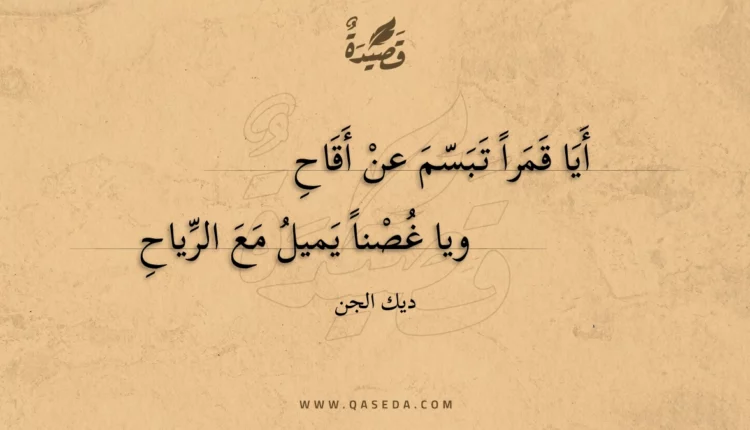 قَصِيدَةٌ
أَيَا قَمَراً تَبَسّمَ عنْ أَقَاحِ
ويا غُصْناً يَميلُ مَعَ الرِّياحِ
ديك الجن
WWW.QASEDA.COM